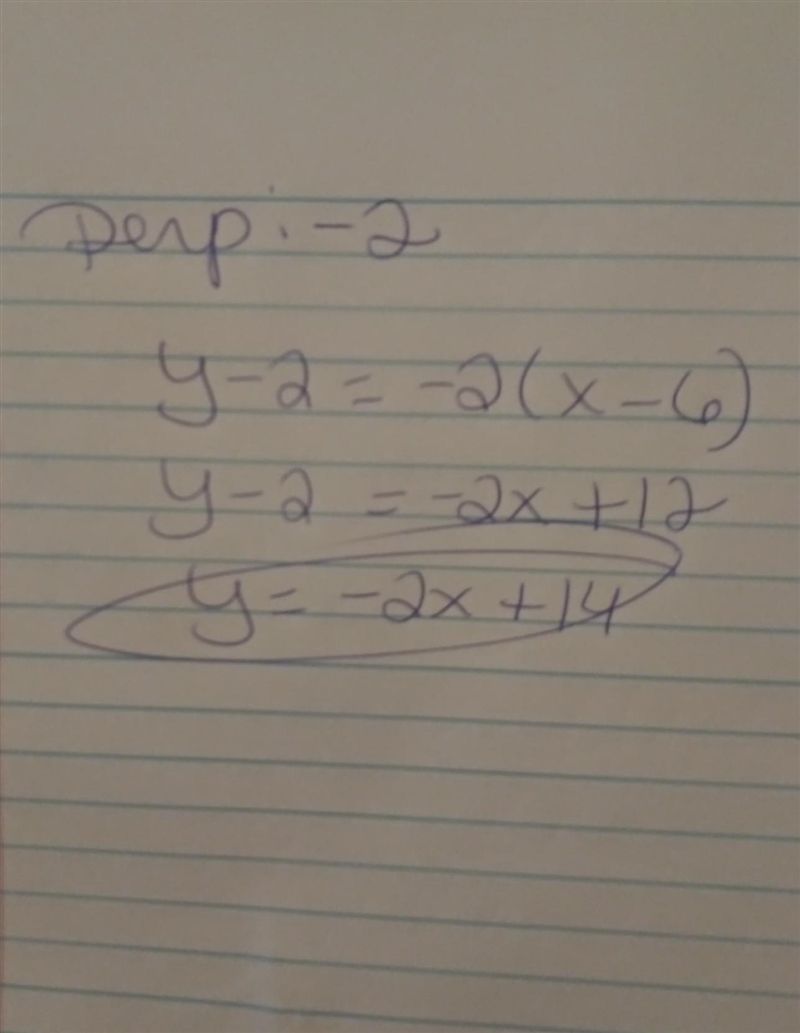 perp: -2
y-2 = -2(x-6)
y-2 = -2x +12
y= -2x +14